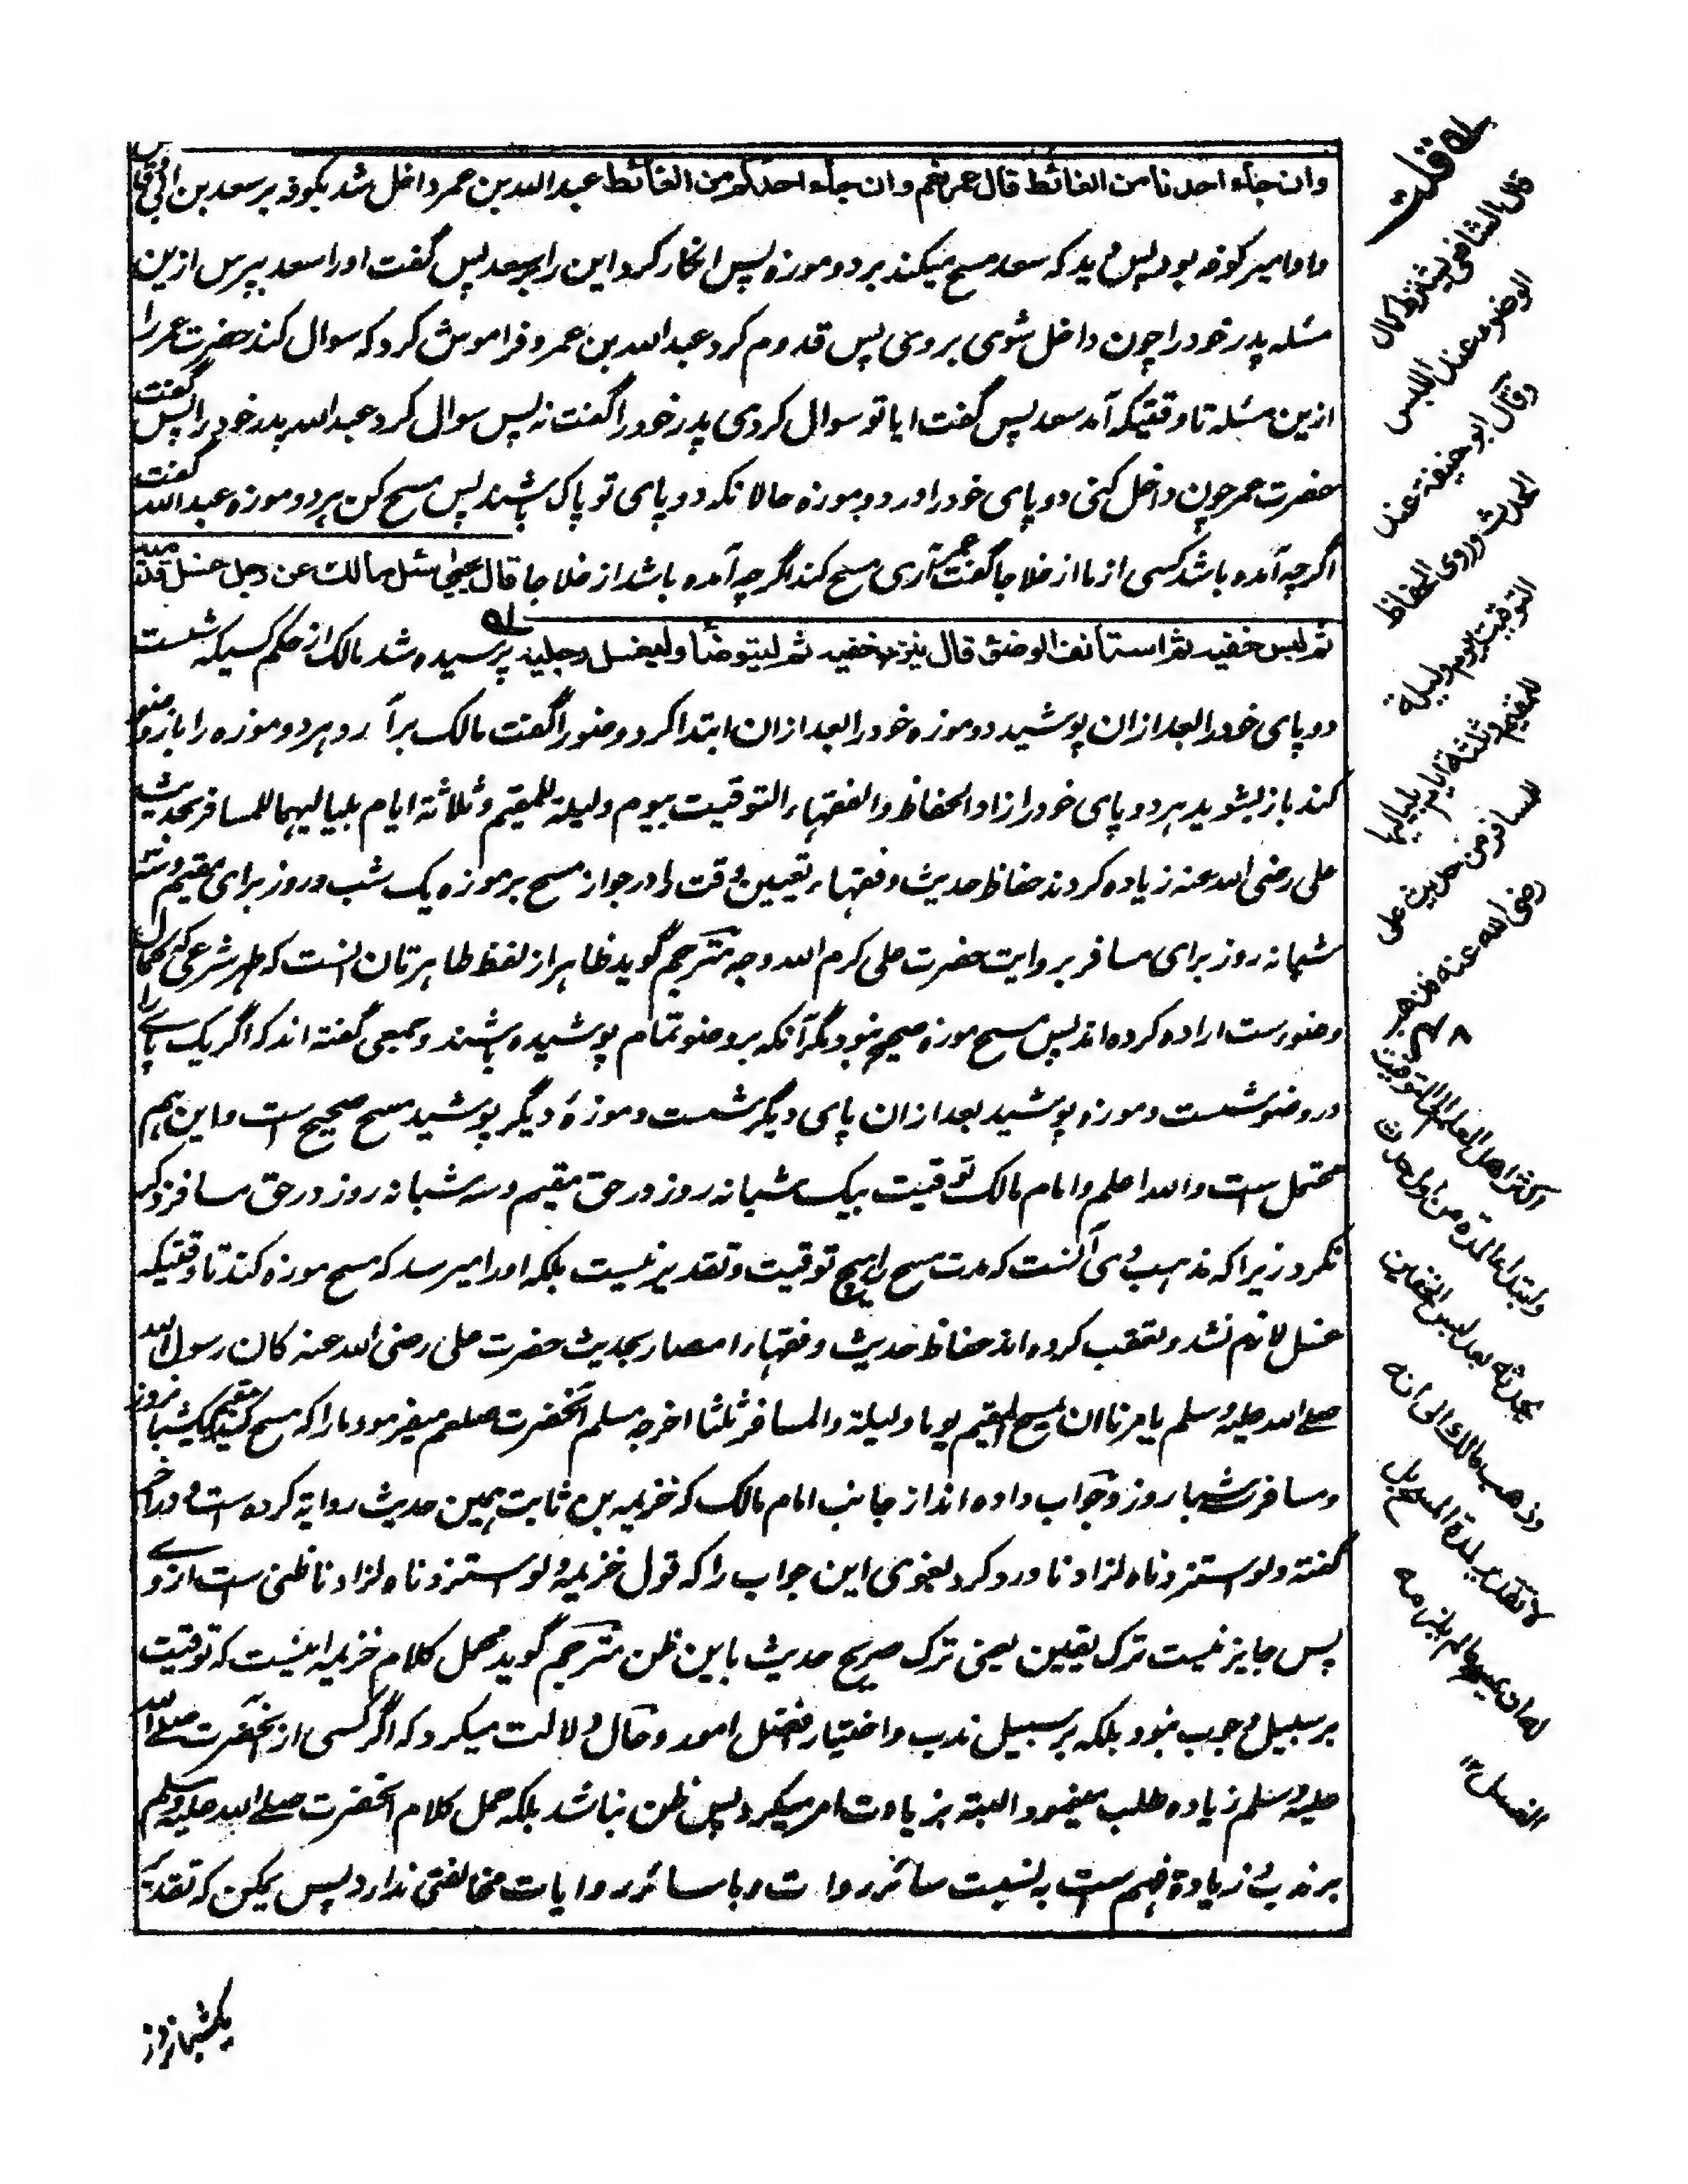 وان جاء احدنا من الغائط قال عمر نعم وان جاء احدكم من الغائط عبد الله بن عمر داخل شد بكوفه بر سعد بن ابى وقاص
واو امیر کوفه بود پس دید که سعد مسح میکند بر دو موزه پس انکار کرد این را بر سعد پس گفت او را سعد بپرس ازین
مسئله پدر خود را چون داخل شوی بر وی پس قدوم کرد عبد الله بن عمر و فراموش کرد که سوال کند حضرت عمر را
ازین مسئله تا وقتیکه آمد سعد پس گفت ایا تو سوال کردی پدر خود را گفت نه پس سوال کرد عبد الله پدر خود را پس گفت
حضرت عمر چون داخل کنی دو پای خود را در دو موزه حالانکه دو پای تو پاک باشند پس مسح کن بر دو موزه عبد الله گفت
اگرچه آمده باشد کسی از ما از خلا جا گفت عمر آری مسح کند اگرچه آمده باشد از خلا جا قال یحیی سئل مالك عن رجل غسل قدمیه
ثم لبس خفیه ثم استأنف الوضوء قال ینزع خفیه ثم لیتوضأ ولیغسل رجلیه پرسیده شد مالک از حکم کسیکه شست
دو پای خود را بعد ازان پوشید دو موزه خود را بعد ازان ابتدا کرد وضو را گفت مالک برآرد هر دو موزه را باز وضو
کند باز بشوید هر دو پای خود را زاد الحفاظ والفقهاء التوقیت بیوم ولیلة للمقیم وثلاثة ایام بلیالیها للمسافر بحدیث
علی رضی الله عنه زیاده کردند حفاظ حدیث و فقهاء تعیین وقت را در جواز مسح بر موزه یک شب و روز برای مقیم و سه
شبانه روز برای مسافر بروایت حضرت علی کرم الله وجهه مترجم گوید ظاهر از لفظ طاهرتان انست که طهر شرعی که کمال
وضوست اراده کرده اند پس مسح موزه صحیح نبود مگر آنکه بر وضو تمام پوشیده باشند و جمعی گفته اند که اگر یک پای را
در وضو شست و موزه پوشید بعد ازان پای دیگر شست و موزهٔ دیگر پوشید مسح صحیح است و این هم
محتمل ست والله اعلم و امام مالک توقیت بیک شبانه روز در حق مقیم و سه شبانه روز در حق مسافر ذکر
نکرد زیرا که مذهب وی آنست که مدت مسح را هیچ توقیت و تقدیر نیست بلکه او را میرسد که مسح موزه کند تا وقتیکه
غسل لازم نشد و تعقب کرده اند حفاظ حدیث و فقهاء امصار بحدیث حضرت علی رضی الله عنه کان رسول الله
صلے الله علیه وسلم یامرنا ان یمسح المقیم یوما ولیلة والمسافر ثلثا اخرجه مسلم آنحضرت صلعم میفرمود ما را که مسح کند مقیم یکشبانروز
و مسافر سه شبانروز و جواب داده اند از جانب امام مالک که خزیمه بن ثابت همین حدیث روایه کرده ست و در آخر
گفته ولو استزدناه لزادنا ورد کرد بغوی این جواب را که قول خزیمه ولو استزدناه لزادنا ظنی ست از وے
پس جایز نیست ترک یقین یعنی ترک صریح حدیث باین ظن مترجم گوید محمل کلام خزیمه اینست که توقیت
بر سبیل وجوب نبود بلکه بر سبیل ندب و اختیار افضل امور و حال دلالت میکرد که اگر کسی از آنحضرت صلے الله
علیه وسلم زیاده طلب مینمود البته بزیادت امر میکرد پس ظن نباشد بلکه حمل کلام آنحضرت صلے الله علیه وسلم
بر ندب زیادة فهم ست به نسبت سائر روات و با سائر روایات مخالفتی ندارد پس یمکن که تقدیر
یکشبانروز
له قلت
قال الشافعی یشترط كمال
الوضوء عند اللبس
وقال ابو حنیفة عند
الحدث وروى الحفاظ
التوقیت بیوم ولیلة
للمقیم وثلثة ایام بلیالیها
للمسافر من حدیث علی
رضی الله عنه فذهب
اكثر اهل العلم الى التوقیت
وابتداء المدة من اول حدث
یحدثه بعد لبس الخفین
وذهب مالك الى انه
لا تقدیر لمدة المسح بل
له ان یمسح ما لم یلزمه
الغسل ۱۲